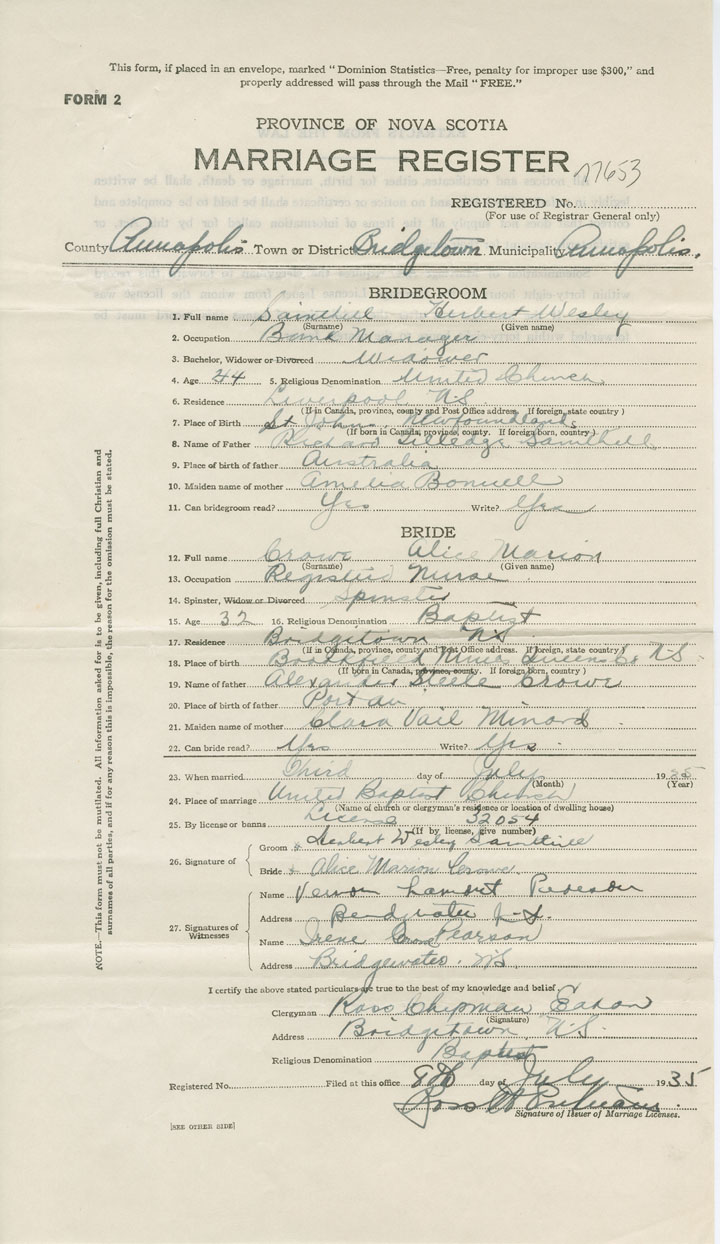 This form, if placed in an envelope, marked "Dominion Statistics—Free, penalty for improper use $300," and
properly addressed will pass through the Mail "FREE."
FORM 2
PROVINCE OF NOVA SCOTIA
MARRIAGE REGISTER
77653
REGISTERED No.
(For use of Registrar General only)
County Annapolis Town or District Bridgetown Municipality Annapolis.
BRIDEGROOM
1. Full name Sainthill Herbert Wesley
(Surname) (Given name)
2. Occupation Bank Manager
3. Bachelor, Widower or Divorced Widower
4. Age 44 5. Religious Denomination United Church
6. Residence Liverpool NS
(If in Canada, province, county and Post Office address. If foreign, state country)
7. Place of Birth St John Newfoundland
(If born in Canada, province, county. If foreign born, country)
8. Name of Father Richard Sainthill
9. Place of birth of father Australia
10. Maiden name of mother Amelia
11. Can bridegroom read? Yes Write? Yes
BRIDE
12. Full name Crowe Alice Marion
(Surname) (Given name)
13. Occupation Registered Nurse
14. Spinster, Widow or Divorced Spinster
15. Age 32 16. Religious Denomination Baptist
17. Residence Bridgetown NS
(If in Canada, province, county and Post Office address. If foreign, state country)
18. Place of birth Brookfield Mines Queens Co NS
(If born in Canada, province, county. If foreign born, country)
19. Name of father Alexander Steele Crowe
20. Place of birth of father
21. Maiden name of mother Clara Vail Minard
22. Can bride read? Yes Write? Yes
23. When married Third day of July 1935
(Month) (Year)
24. Place of marriage United Baptist Church
(Name of church or clergyman's residence or location of dwelling house)
25. By license or banns License 32054
(If by license, give number)
26. Signature of
Groom Herbert Wesley Sainthill
Bride Alice Marion Crowe
27. Signatures of Witnesses
Name Vernon Lambert
Address Bridgewater N.S.
Name Irene Crowe Pearson
Address Bridgewater. NS
I certify the above stated particulars are true to the best of my knowledge and belief.
Clergyman Ross Chipman Eaton
(Signature)
Address Bridgetown, N.S.
Religious Denomination Baptist
Registered No. Filed at this office 8th day of July 1935
Signature of Issuer of Marriage Licenses.
[SEE OTHER SIDE]
NOTE.—This form must not be mutilated. All information asked for is to be given, including full Christian and
surnames of all parties, and if for any reason this is impossible, the reason for the omission must be stated.